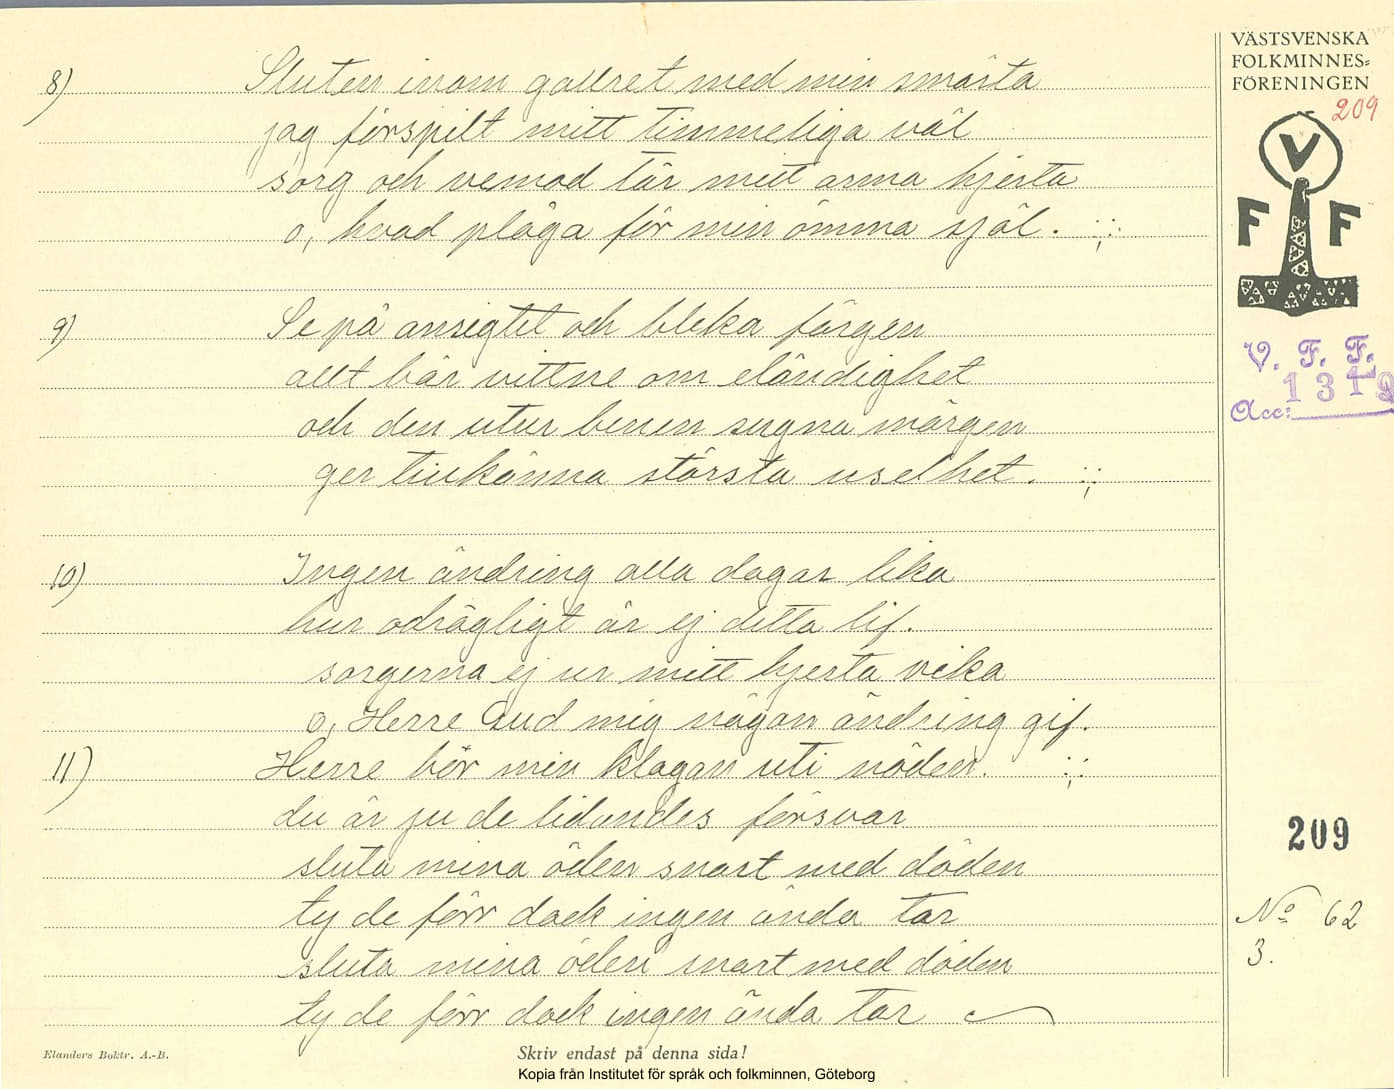 8) Sluten inom gallret med min smärta
jag förspilt mitt timmeliga väl
sorg och vemod tär mitt arma hjerta
o, hvad plåga för min ömma själ. :;:
9) Se på ansigtet och bleka färgen
allt bär vittne om eländighet
och den utur benen sugna märgen
ger tillkänna största uselhet. :;:
10) Ingen ändring alla dagar lika
hur odrägligt är ej detta lif.
sorgerna ej ur mitt hjerta vika
o, Herre Gud mig någon ändring gif.
11) Herre hör min klagan uti nöden. :;:
du är ju de lidandes försvar
sluta mina öden snart med döden
ty de förr dock ingen ända tar
sluta mina öden snart med döden
ty de förr dock ingen ända tar
Elanders Boktr. A.-B.
Skriv endast på denna sida!
Kopia från Institutet för språk och folkminnen, Göteborg
VÄSTSVENSKA
FOLKMINNES=
FÖRENINGEN
209
V
F F
V. F. F.
1319
Acc:
209
No 62
3.